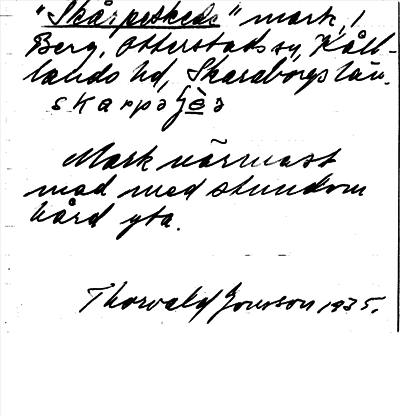 "Skårpeskeds" mark, i
Berg, Otterstads sn, Kåll-
lands hd, Skaraborgs län.
skarpə
Mark närmast
mad med stundom
hård yta.
Thorvald Jonsson 1935.